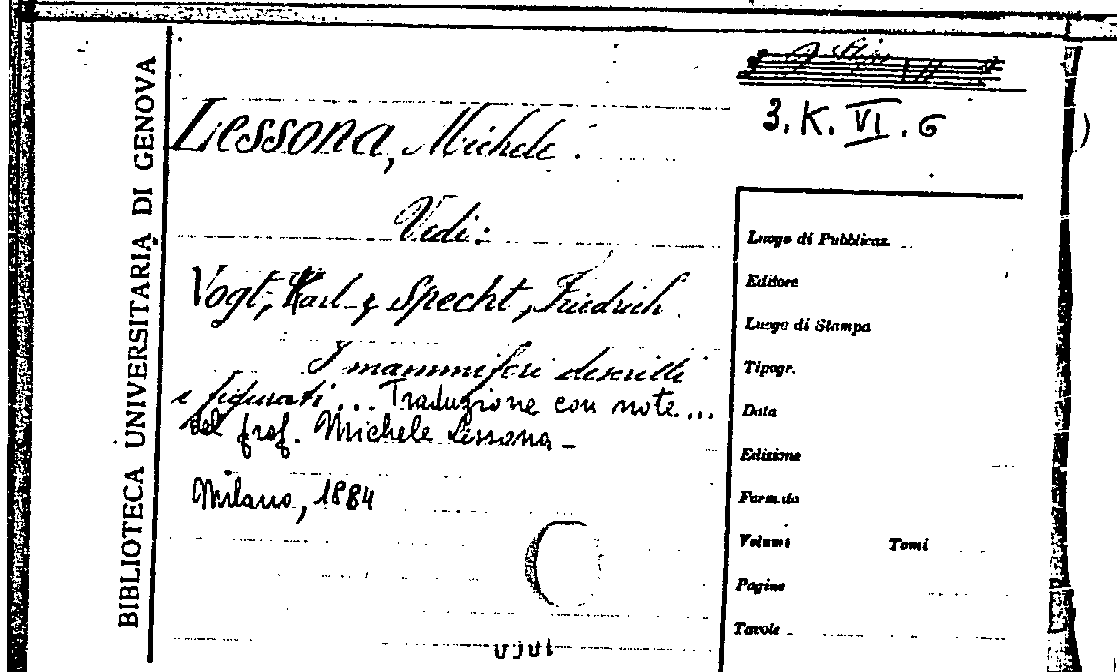 BIBLIOTECA UNIVERSITARIA DI GENOVA
3. K. VI. 6
Lessona, Michele.
Vedi:
Vogt, Karl e Specht, Friedrich
I mammiferi descritti
e figurati... Traduzione con note...
del prof. Michele Lessona -
Milano, 1884
Luogo di Pubblicaz.
Editore
Luogo di Stampa
Tipogr.
Data
Edizione
Formato
Volumi Tomi
Pagine
Tavole